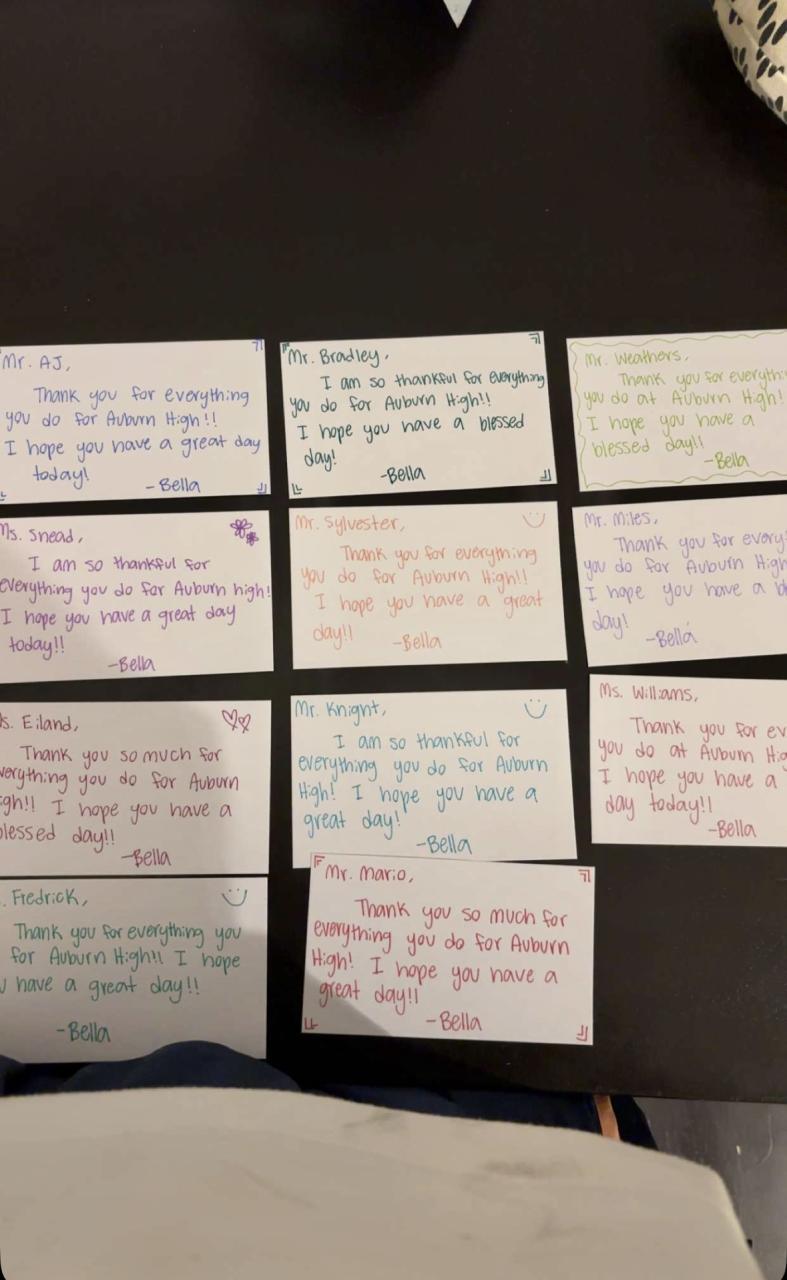 Mr. AJ,
Thank you for everything
you do for Auburn High!!
I hope you have a great day
today!
-Bella
Mr. Bradley,
I am so thankful for everything
you do for Auburn High!!
I hope you have a blessed
day!
-Bella
Mr. Weathers,
Thank you for
you do at Auburn High!
I hope you have a
blessed day!!
-Bella
Ms. Snead,
I am so thankful for
everything you do for Auburn high!
I hope you have a great day
today!!
-Bella
Mr. Sylvester,
Thank you for everything
you do for Auburn High!!
I hope you have a great
day!!
-Bella
Mr. Miles,
Thank you for
you do for Auburn High
I hope you have a
day!
-Bella
Eiland,
Thank you so much for
everything you do for Auburn
I hope you have a
blessed day!!
-Bella
Mr. Knight,
I am so thankful for
everything you do for Auburn
High! I hope you have a
great day!
-Bella
Ms. Williams,
Thank you for
you do at Auburn
I hope you have a
day today!!
-Bella
Fredrick,
Thank you for everything you
for Auburn High!! I hope
have a great day!!
-Bella
Mr. Mario,
Thank you so much for
everything you do for Auburn
High! I hope you have a
great day!!
-Bella